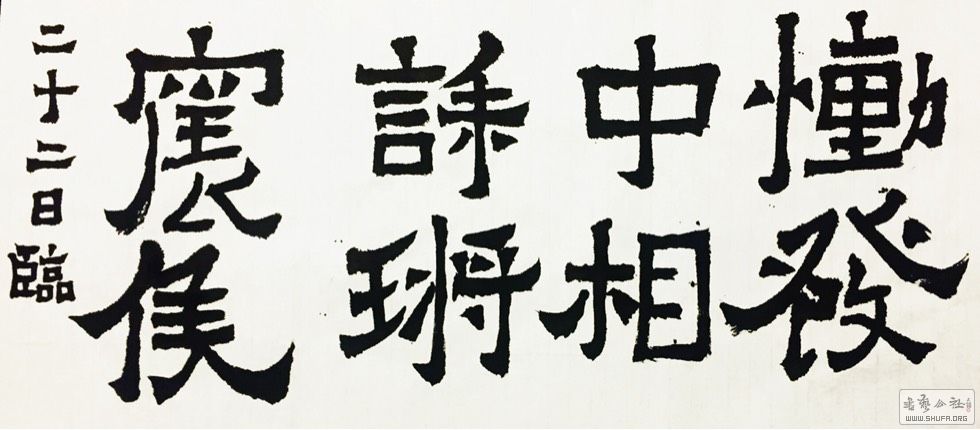 慟發
中相
寑侯
二十二日臨
书艺公社
WWW.SHUFA.ORG